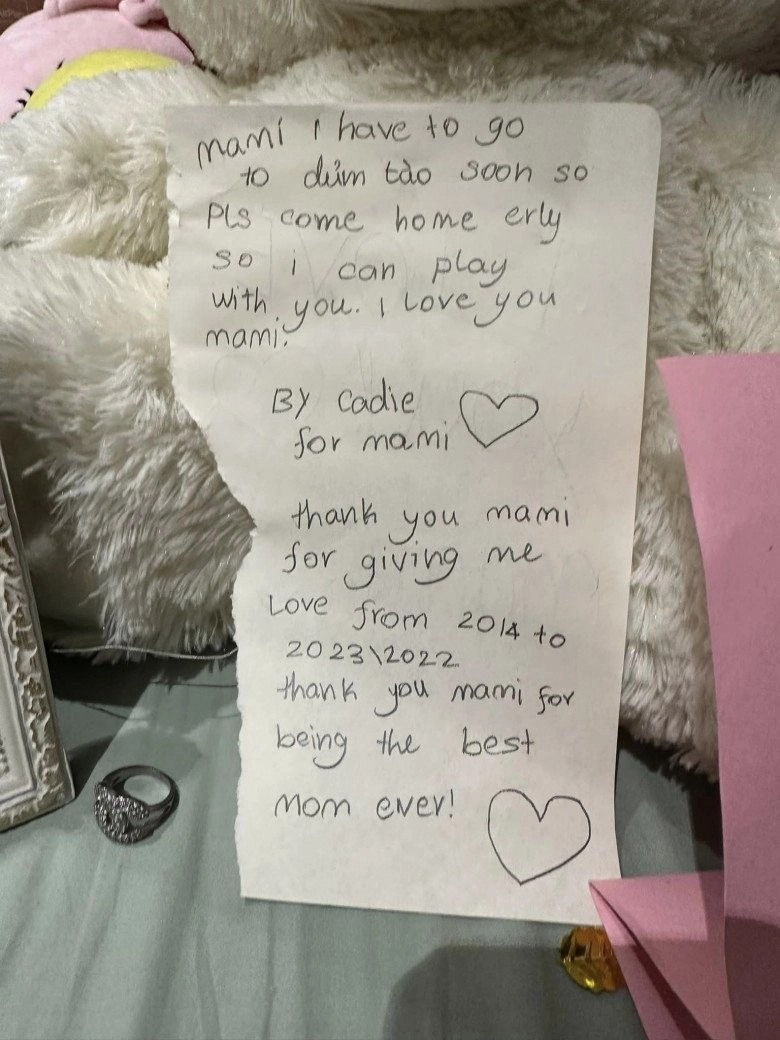 mami i have to go
to dủm tào soon so
PLS come home erly
so i can play
with you. i Love you
mami.
By Cadie
for mami
thank you mami
for giving me
Love from 2014 to
2023\2022
thank you mami for
being the best
Mom ever!